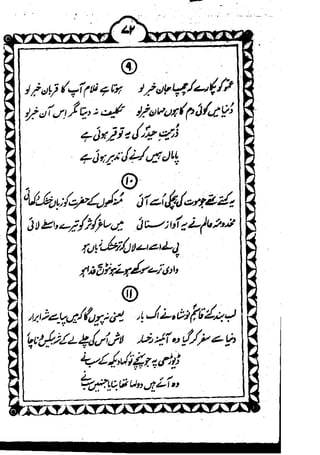 ۷۲
۹
عمو کو پکارے کہ چچا جان خبر لو ہوتا ہے غلام آپ کا قربان خبر لو
دُنیا میں کوئی دم کا ہوں مہمان خبر لو تکلیف نہ دیتا مگر اس آن خبر لو
ذریت حیدرؑ کی یہ توقیر ہوئی ہے
پامال ہمیں کرنے کی تدبیر ہوئی ہے
۱۰
یہ کہتے تھے جو موت کی ہچکی اُسے آئی منھ کھول کے حضرت کو زباں خشک دکھائی
مخدومۂ عالم نے یہ آواز سنائی میں ساغرِ کوثر کو تیرے واسطے لائی
پی لے اسے اے لال کہ تر خشک زباں ہو
دادی ترے سوکھے ہوئے ہونٹوں پہ فدا ہو
۱۱
لب بند کئے قاسمِ نوشاہ نے اک بار یعنی نہ پیوں گا کہ ہیں پیاسے شہِ ابرار
دنیا سے سفر کر گیا وہ آئینہ رخسار لاش اُس کی چلے لے کے شہِ بیکس و ناچار
ڈیوڑھی پہ جو پہنچے تو کہا دیکھ کے سب نے
وہ آئے ہیں دولہا تھا بنایا جنہیں سب نے